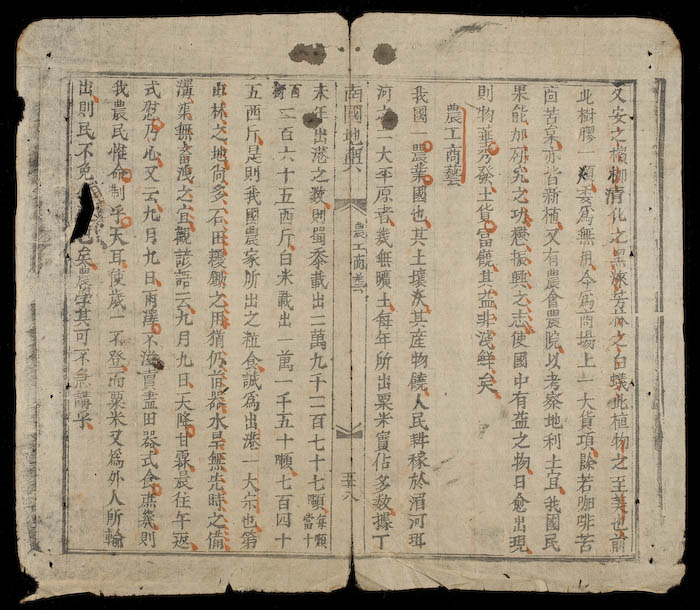 乂安之檳榔清化之黑漆芳林之白蟻此植物之至美也前
此樹膠一類委爲無用今爲商塲上一大貨項餘若咖啡苦
苦菓亦皆新植又有農會農院以考察地利土宜我國民
果能加硏究之功懋振興之志使國中有益之物日愈出現
則物華秀發土貨富饒其益非淺鮮矣
農工商藝
我國一農業國也其土壤沃其產物饒人民耕稼於湄河珥
河之二大平原者幾無曠土每年所出粟米實佔多數據丁
南國地輿 農工商藝 五十八
未年出港之數則蜀黍載出二萬九千二百七十七噸每噸當十
百斤二百六十五西斤白米載出一萬一千五十噸七百四十
五西斤是則我國農家所出之粒食誠爲出港一大宗也第
山林之地尚多石田耰鋤之用猶仍舊器水旱無先時之備
溝渠無畜洩之宜觀諺語云九月九日天降甘霖晨往午返
式慰乃心又云九月九日雨澤不滋賣盡田器式食庶幾則
我農民惟命制乎天耳使歲一不登而粟米又爲外人所輸
出則民不免 矣農學其可不急講乎